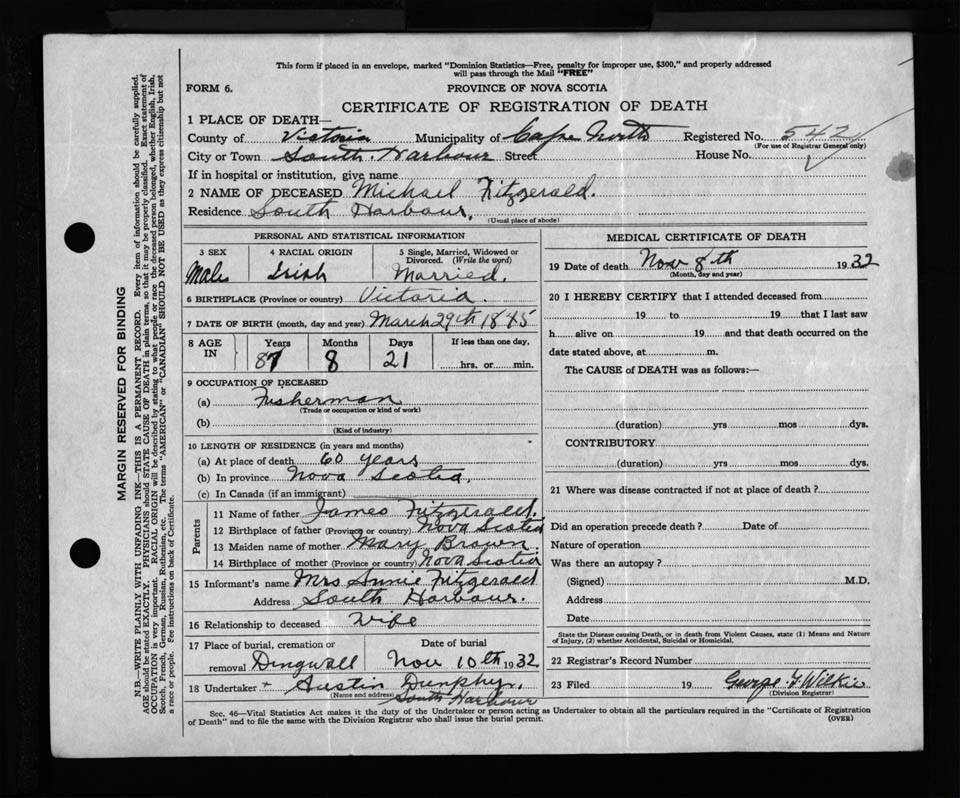 This form if placed in an envelope, marked "Dominion Statistics—Free, penalty for improper use, $300," and properly addressed
will pass through the Mail "FREE"
FORM 6.
PROVINCE OF NOVA SCOTIA
CERTIFICATE OF REGISTRATION OF DEATH
1 PLACE OF DEATH—
County of Victoria Municipality of Cape North Registered No. 542
(For use of Registrar General only)
City or Town South Harbour Street House No.
If in hospital or institution, give name
2 NAME OF DECEASED Michael Fitzgerald.
Residence South Harbour,
(Usual place of abode)
PERSONAL AND STATISTICAL INFORMATION
3 SEX 4 RACIAL ORIGIN 5 Single, Married, Widowed or
Divorced. (Write the word)
Male Irish Married.
6 BIRTHPLACE (Province or country) Victoria.
7 DATE OF BIRTH (month, day and year) March 29th 1845
8 AGE IN Years Months Days If less than one day,
87 8 21 hrs. or min.
9 OCCUPATION OF DECEASED
(a) Fisherman
(Trade or occupation or kind of work)
(b)
(Kind of industry)
10 LENGTH OF RESIDENCE (in years and months)
(a) At place of death 60 years
(b) In province Nova Scotia,
(c) In Canada (if an immigrant)
Parents
11 Name of father James Fitzgerald.
12 Birthplace of father (Province or country) Nova Scotia
13 Maiden name of mother Mary Brown.
14 Birthplace of mother (Province or country) Nova Scotia
15 Informant's name Mrs Annie Fitzgerald
Address South Harbour.
16 Relationship to deceased Wife
17 Place of burial, cremation or Date of burial
removal Dingwall Nov 10th 1932
18 Undertaker + Austin Dunphy,
(Name and address) South Harbour
MEDICAL CERTIFICATE OF DEATH
19 Date of death Nov 8th 1932
(Month, day and year)
20 I HEREBY CERTIFY that I attended deceased from
19 to 19 that I last saw
h alive on 19 and that death occurred on the
date stated above, at m.
The CAUSE of DEATH was as follows:—
(duration) yrs mos dys.
CONTRIBUTORY
(duration) yrs mos dys.
21 Where was disease contracted if not at place of death?
Did an operation precede death? Date of
Nature of operation
Was there an autopsy?
(Signed) M.D.
Address
Date
State the Disease causing Death, or in death from Violent Causes, state (1) Means and Nature
of Injury, (2) whether Accidental, Suicidal or Homicidal.
22 Registrar's Record Number
23 Filed 19 George F Wilkie
(Division Registrar)
Sec. 46—Vital Statistics Act makes it the duty of the Undertaker or person acting as Undertaker to obtain all the particulars required in the "Certificate of Registration
of Death" and to file the same with the Division Registrar who shall issue the burial permit.
(OVER)
MARGIN RESERVED FOR BINDING
N.B.—WRITE PLAINLY WITH UNFADING INK—THIS IS A PERMANENT RECORD. Every item of information should be carefully supplied.
AGE should be stated EXACTLY. PHYSICIANS should STATE CAUSE OF DEATH in plain terms, so that it may be properly classified. Exact statement of
OCCUPATION is very important. RACIAL ORIGIN will be described by stating to what people or race the deceased person belonged, whether English, Irish,
Scotch, French, German, Russian, Ruthenian, etc. The terms "AMERICAN" or "CANADIAN" SHOULD NOT BE USED as they express citizenship but not
a race or people. See instructions on back of Certificate.